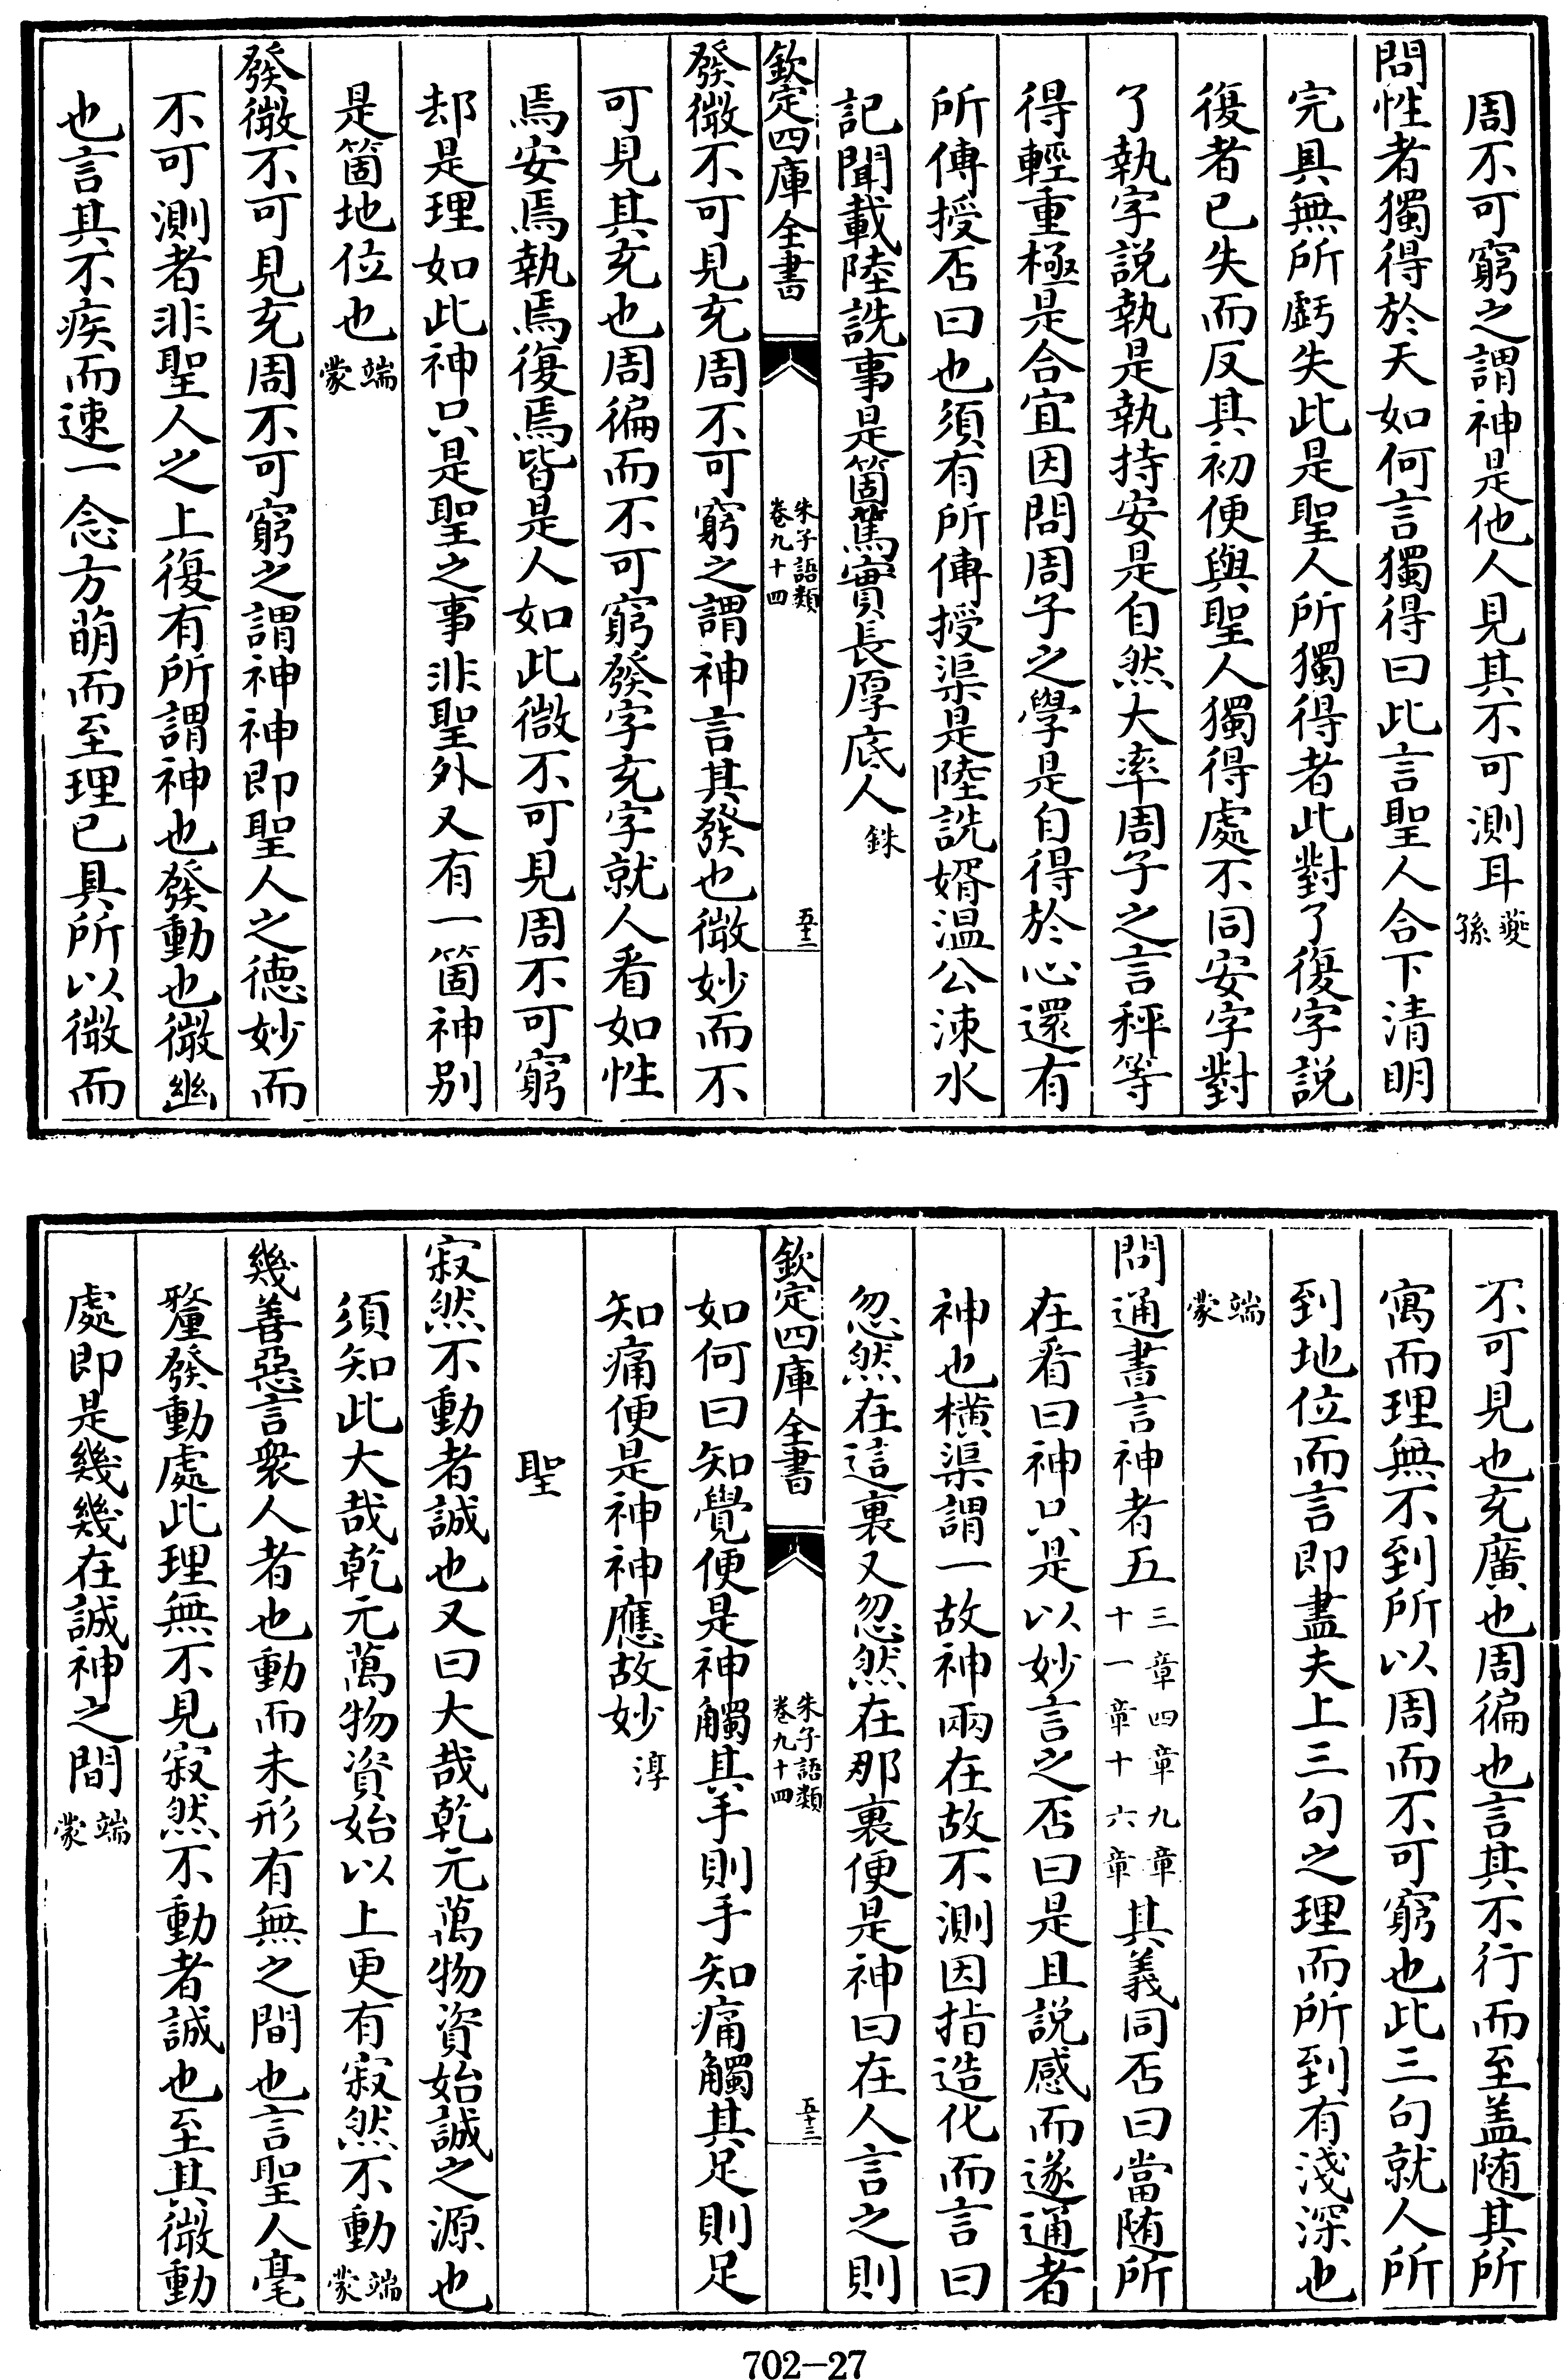 周不可窮之謂神是他人見其不可測耳夔孫
問性者獨得於天如何言獨得曰此言聖人合下清明
完具無所虧失此是聖人所獨得者此對了復字説
復者已失而反其初便與聖人獨得處不同安字對
了執字説執是執持安是自然大率周子之言秤等
得輕重極是合宜因問周子之學是自得於心還有
所傳授否曰也須有所傳授渠是陸詵婿温公涑水
記聞載陸詵事是箇篤實長厚底人銖
欽定四庫全書
朱子語類
卷九十四
五十二
發微不可見充周不可窮之謂神言其發也微妙而不
可見其充也周徧而不可窮發字充字就人看如性
焉安焉執焉復焉皆是人如此微不可見周不可窮
却是理如此神只是聖之事非聖外又有一箇神别
是箇地位也端蒙
發微不可見充周不可窮之謂神神即聖人之德妙而
不可測者非聖人之上復有所謂神也發動也微幽
也言其不疾而速一念方萌而至理已具所以微而
不可見也充廣也周徧也言其不行而至盖随其所
寓而理無不到所以周而不可窮也此三句就人所
到地位而言即盡夫上三句之理而所到有淺深也
端蒙
問通書言神者五三章四章九章十一章十六章其義同否曰當随所
在看曰神只是以妙言之否曰是且説感而遂通者
神也横渠謂一故神兩在故不測因指造化而言曰
忽然在這裏又忽然在那裏便是神曰在人言之則
欽定四庫全書
朱子語類
卷九十四
五十三
如何曰知覺便是神觸其手則手知痛觸其足則足
知痛便是神神應故妙淳
聖
寂然不動者誠也又曰大哉乾元萬物資始誠之源也
須知此大哉乾元萬物資始以上更有寂然不動端蒙
幾善惡言衆人者也動而未形有無之間也言聖人毫
釐發動處此理無不見寂然不動者誠也至其微動
處即是幾幾在誠神之間端蒙
702-27